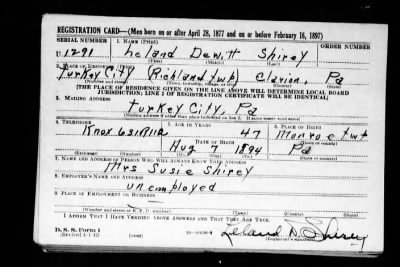 REGISTRATION CARD—(Men born on or after April 28, 1877 and on or before February 16, 1897)
SERIAL NUMBER 1. NAME (Print)
U 1291 Leland Dewitt Shirey
(First) (Middle) (Last)
2. PLACE OF RESIDENCE (Print)
Turkey City (Richland twp) Clarion, Pa
[THE PLACE OF RESIDENCE GIVEN ON THE LINE ABOVE WILL DETERMINE LOCAL BOARD
JURISDICTION; LINE 2 OF REGISTRATION CERTIFICATE WILL BE IDENTICAL]
3. MAILING ADDRESS
Turkey City, Pa
4. TELEPHONE 5. AGE IN YEARS 6. PLACE OF BIRTH
Knox 47 Monroe twp
DATE OF BIRTH
Aug 7 1894 Pa
(Exchange) (Number) (Mo.) (Day) (Yr.) (State or country)
7. NAME AND ADDRESS OF PERSON WHO WILL ALWAYS KNOW YOUR ADDRESS
Mrs Susie Shirey
8. EMPLOYER'S NAME AND ADDRESS
unemployed
9. PLACE OF EMPLOYMENT OR BUSINESS
(Number and street or R. F. D. number) (Town) (County) (State)
I AFFIRM THAT I HAVE VERIFIED ABOVE ANSWERS AND THAT THEY ARE TRUE.
D. S. S. Form 1
(Revised 4-1-42) (over) Leland D. Shirey